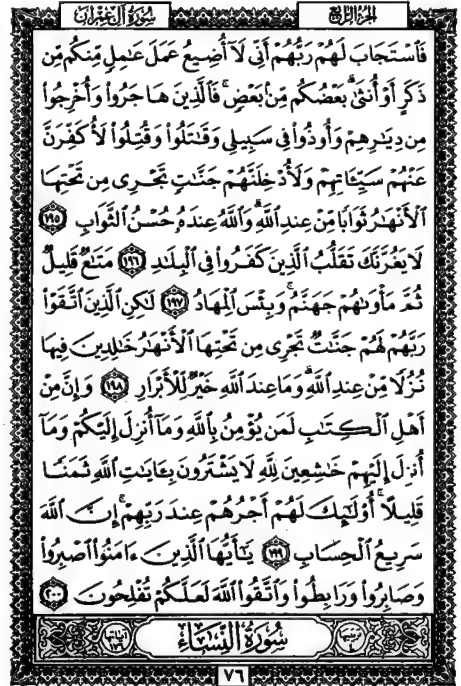 سُورَةُ آلِ عِمْرَان
الجزء الرابع
فَٱسْتَجَابَ لَهُمْ رَبُّهُمْ أَنِّى لَآ أُضِيعُ عَمَلَ عَٰمِلٍ مِّنكُم مِّن
ذَكَرٍ أَوْ أُنثَىٰ ۖ بَعْضُكُم مِّنۢ بَعْضٍ ۖ فَٱلَّذِينَ هَاجَرُوا۟ وَأُخْرِجُوا۟
مِن دِيَٰرِهِمْ وَأُوذُوا۟ فِى سَبِيلِى وَقَٰتَلُوا۟ وَقُتِلُوا۟ لَأُكَفِّرَنَّ
عَنْهُمْ سَيِّـَٔاتِهِمْ وَلَأُدْخِلَنَّهُمْ جَنَّٰتٍ تَجْرِى مِن تَحْتِهَا
ٱلْأَنْهَٰرُ ثَوَابًا مِّنْ عِندِ ٱللَّهِ ۗ وَٱللَّهُ عِندَهُۥ حُسْنُ ٱلثَّوَابِ ١٩٥
لَا يَغُرَّنَّكَ تَقَلُّبُ ٱلَّذِينَ كَفَرُوا۟ فِى ٱلْبِلَٰدِ ١٩٦ مَتَٰعٌ قَلِيلٌ
ثُمَّ مَأْوَىٰهُمْ جَهَنَّمُ ۚ وَبِئْسَ ٱلْمِهَادُ ١٩٧ لَٰكِنِ ٱلَّذِينَ ٱتَّقَوْا۟
رَبَّهُمْ لَهُمْ جَنَّٰتٌ تَجْرِى مِن تَحْتِهَا ٱلْأَنْهَٰرُ خَٰلِدِينَ فِيهَا
نُزُلًا مِّنْ عِندِ ٱللَّهِ ۗ وَمَا عِندَ ٱللَّهِ خَيْرٌ لِّلْأَبْرَارِ ١٩٨ وَإِنَّ مِنْ
أَهْلِ ٱلْكِتَٰبِ لَمَن يُؤْمِنُ بِٱللَّهِ وَمَآ أُنزِلَ إِلَيْكُمْ وَمَآ
أُنزِلَ إِلَيْهِمْ خَٰشِعِينَ لِلَّهِ لَا يَشْتَرُونَ بِـَٔايَٰتِ ٱللَّهِ ثَمَنًا
قَلِيلًا ۗ أُو۟لَٰٓئِكَ لَهُمْ أَجْرُهُمْ عِندَ رَبِّهِمْ ۗ إِنَّ ٱللَّهَ
سَرِيعُ ٱلْحِسَابِ ١٩٩ يَٰٓأَيُّهَا ٱلَّذِينَ ءَامَنُوا۟ ٱصْبِرُوا۟
وَصَابِرُوا۟ وَرَابِطُوا۟ وَٱتَّقُوا۟ ٱللَّهَ لَعَلَّكُمْ تُفْلِحُونَ ٢٠٠
ترتيبها ٤
سُورَةُ النِّسَاءِ
آياتها ١٧٦
٧٦